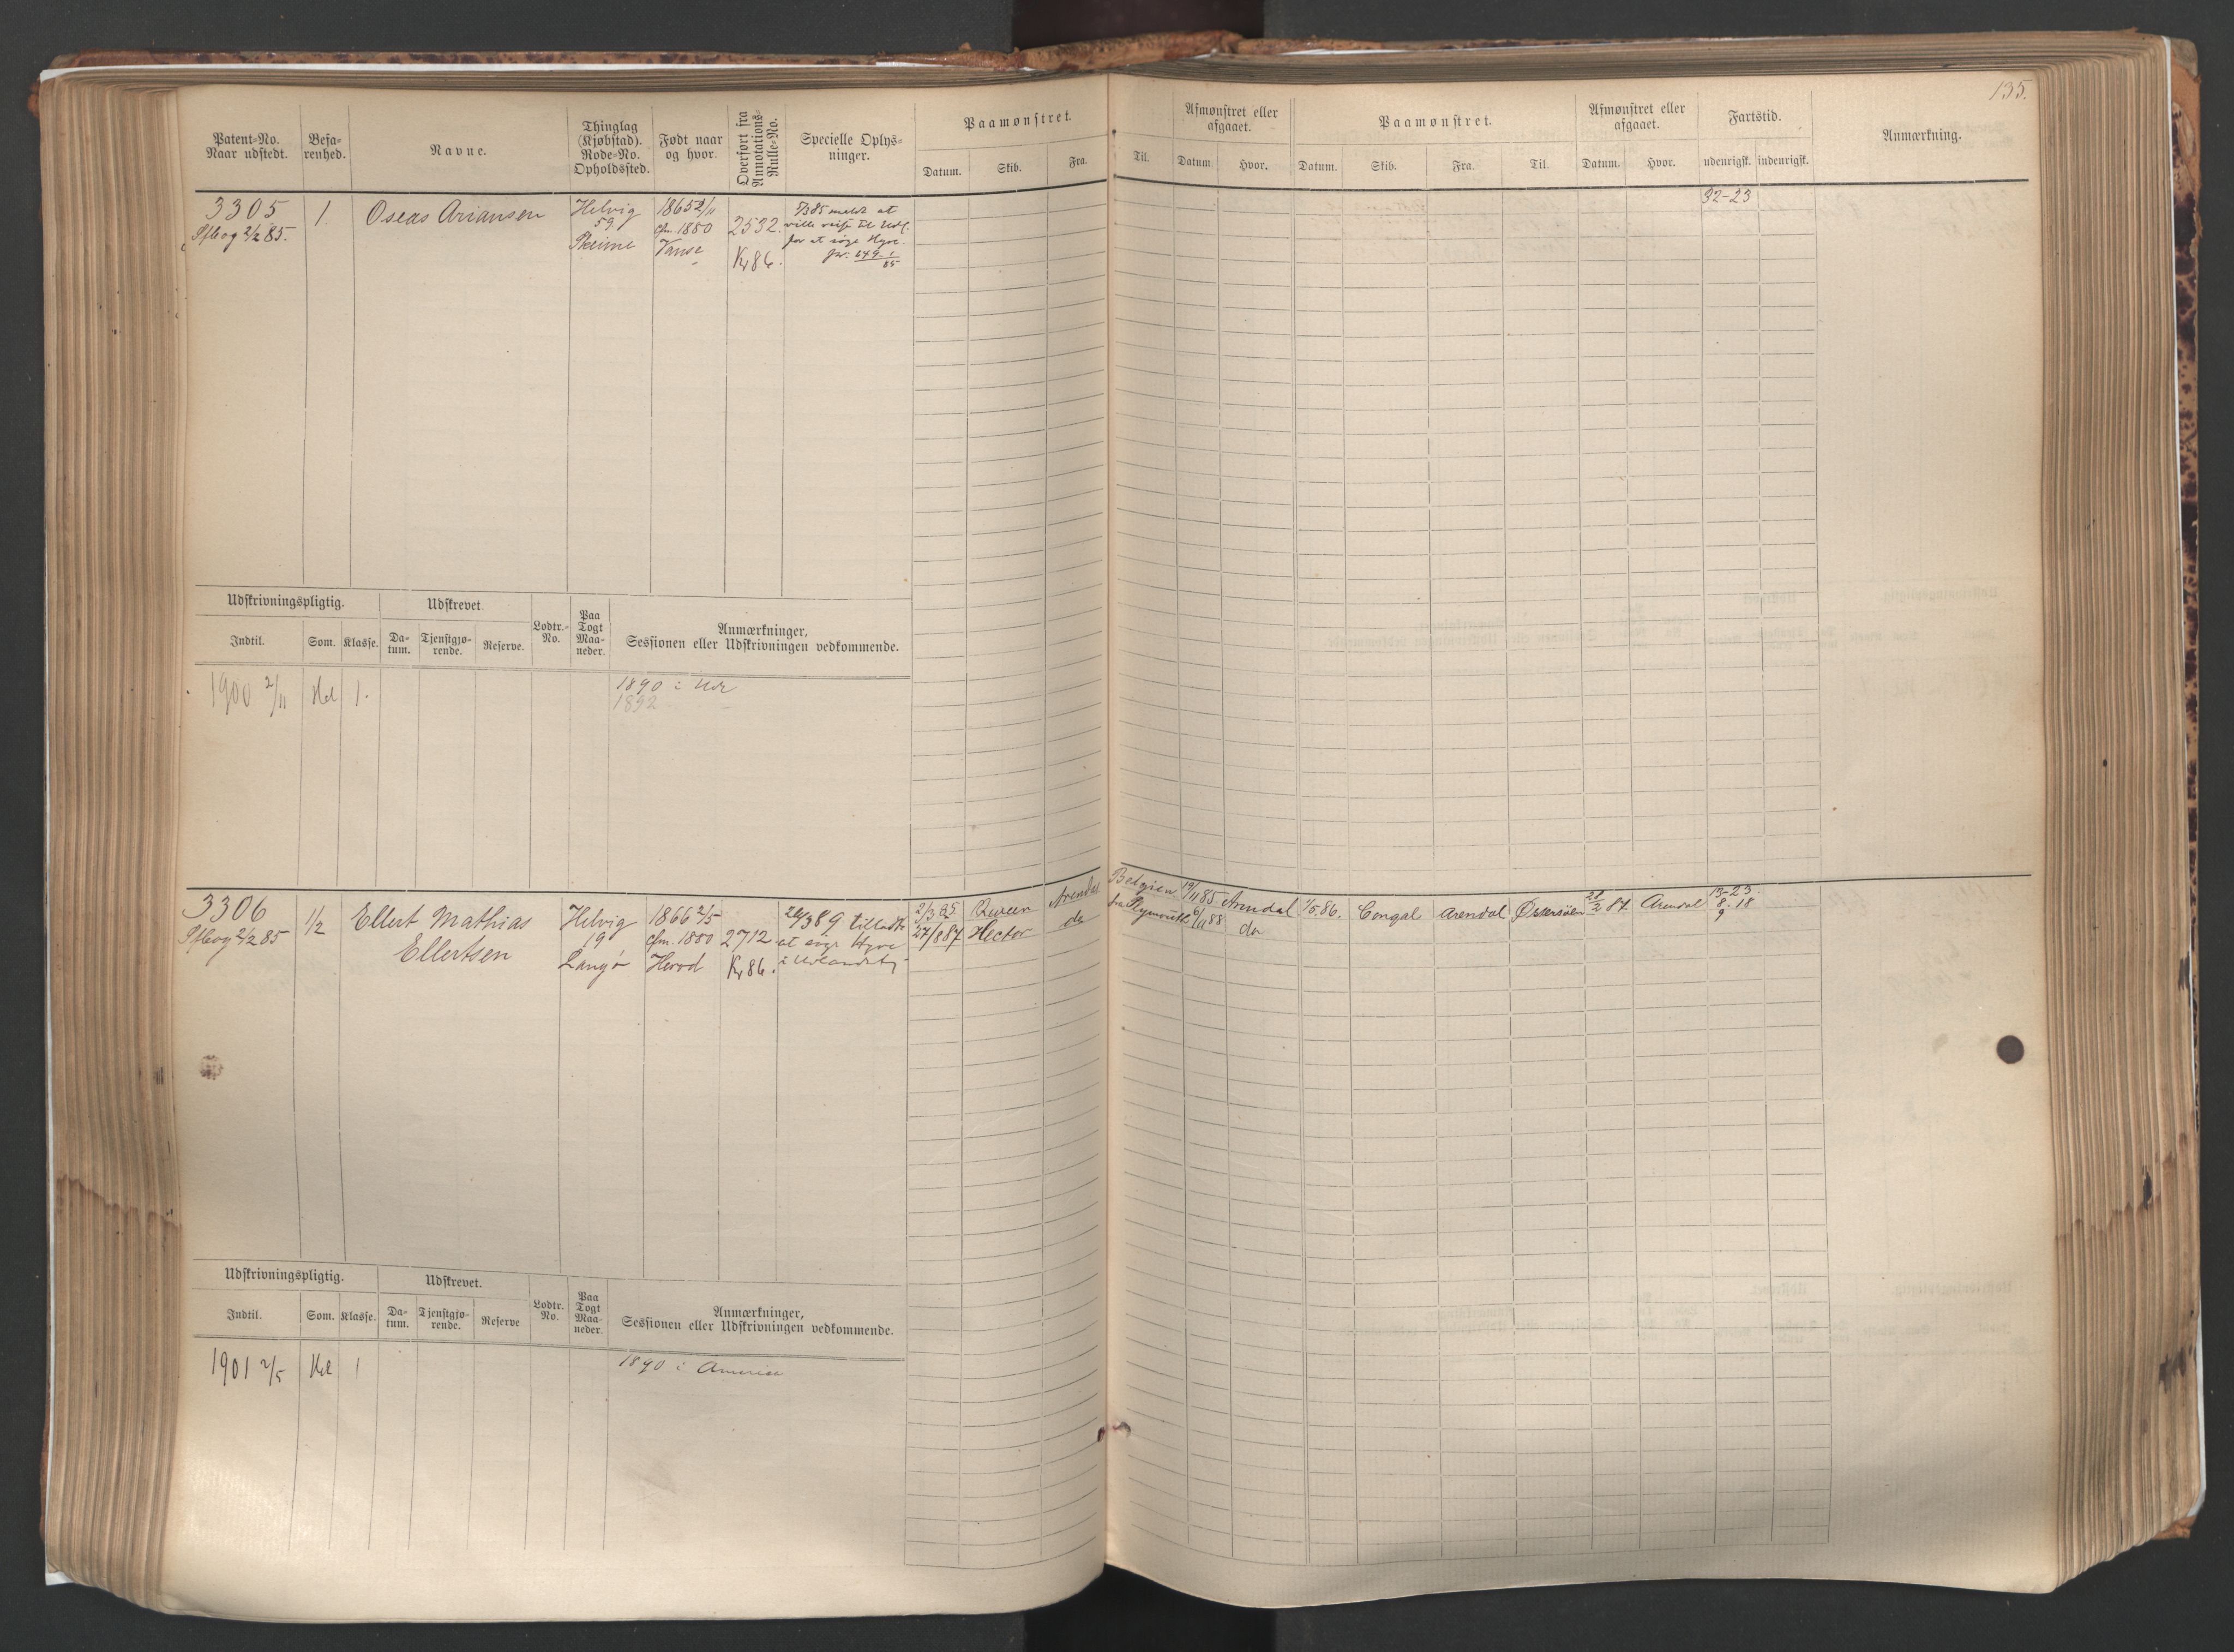 135.
Patent-No. Naar udstedt.
Befa-renhed.
Navne.
Thinglag (Kjøbstad). Rode-No. Opholdssted.
Født naar og hvor.
Overført fra Annotations-Rulle-No.
Specielle Oplys-ninger.
Paamønstret.
Datum. Skib. Fra. Til.
Afmønstret eller afgaaet.
Datum. Hvor.
Paamønstret.
Datum. Skib. Fra. Til.
Afmønstret eller afgaaet.
Datum. Hvor.
Fartstid.
udenrigsk. indenrigsk.
Anmærkning.
3305
Sfbog 2/2 85.
1.
Oseas Ariansen
Helvig
59.
1865 2/11
cfm. 1880
Vanse
2532.
Kr 86.
7/3 85 meldt at
ville reise til Udl.
for at søge Hyre.
32-23
Udskrivningspligtig.
Indtil. Som. Klasse.
Udskrevet.
Da-tum. Tjenstgjø-rende. Reserve.
Lodtr.-No.
Paa Togt Maa-neder.
Anmærkninger,
Sessionen eller Udskrivningen vedkommende.
1900 2/11 Hel 1.
1890 i Udl
1892
3306
Sfbog 2/2 85
1/2
Ellert Mathias
Ellertsen
Helvig
19
Langø
1866 2/5
cfm. 1880
Herod
2712.
Kr 86.
26/3 89 tilladt
at søge Hyre
i Udlandet
2/3 85 Queen Arendal Belgien 19/11 85 Arendal 1/5 86. Congal Arendal Østersøen 21/2 87. Arendal 13-23.
27/8 87 Hector do fra Plymouth 6/11 88 do
8. 18
9
Udskrivningspligtig.
Indtil. Som. Klasse.
Udskrevet.
Da-tum. Tjenstgjø-rende. Reserve
Lodtr. No.
Paa Togt Maa-neder.
Anmærkninger,
Sessionen eller Udskrivningen vedkommende.
1901 2/5 Hel 1
1890 i America